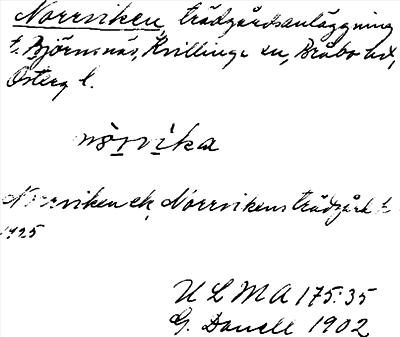 Norrviken, trädgårdsanläggning
t. Björnsnäs, Kvillinge sn, Bråbo hd,
Österg l.
nòrvìka
Norrviken ek, Norrvikens trädgårk t
1925
ULMA 175:35
G. Danell 1902